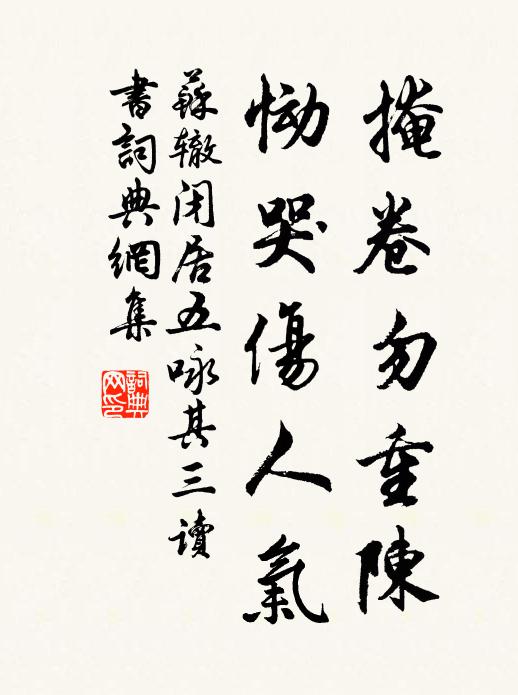 掩卷勿重陳
慟哭傷人氣
蘇辙闭居五咏其三讀
書詞典網集
詞典
网印